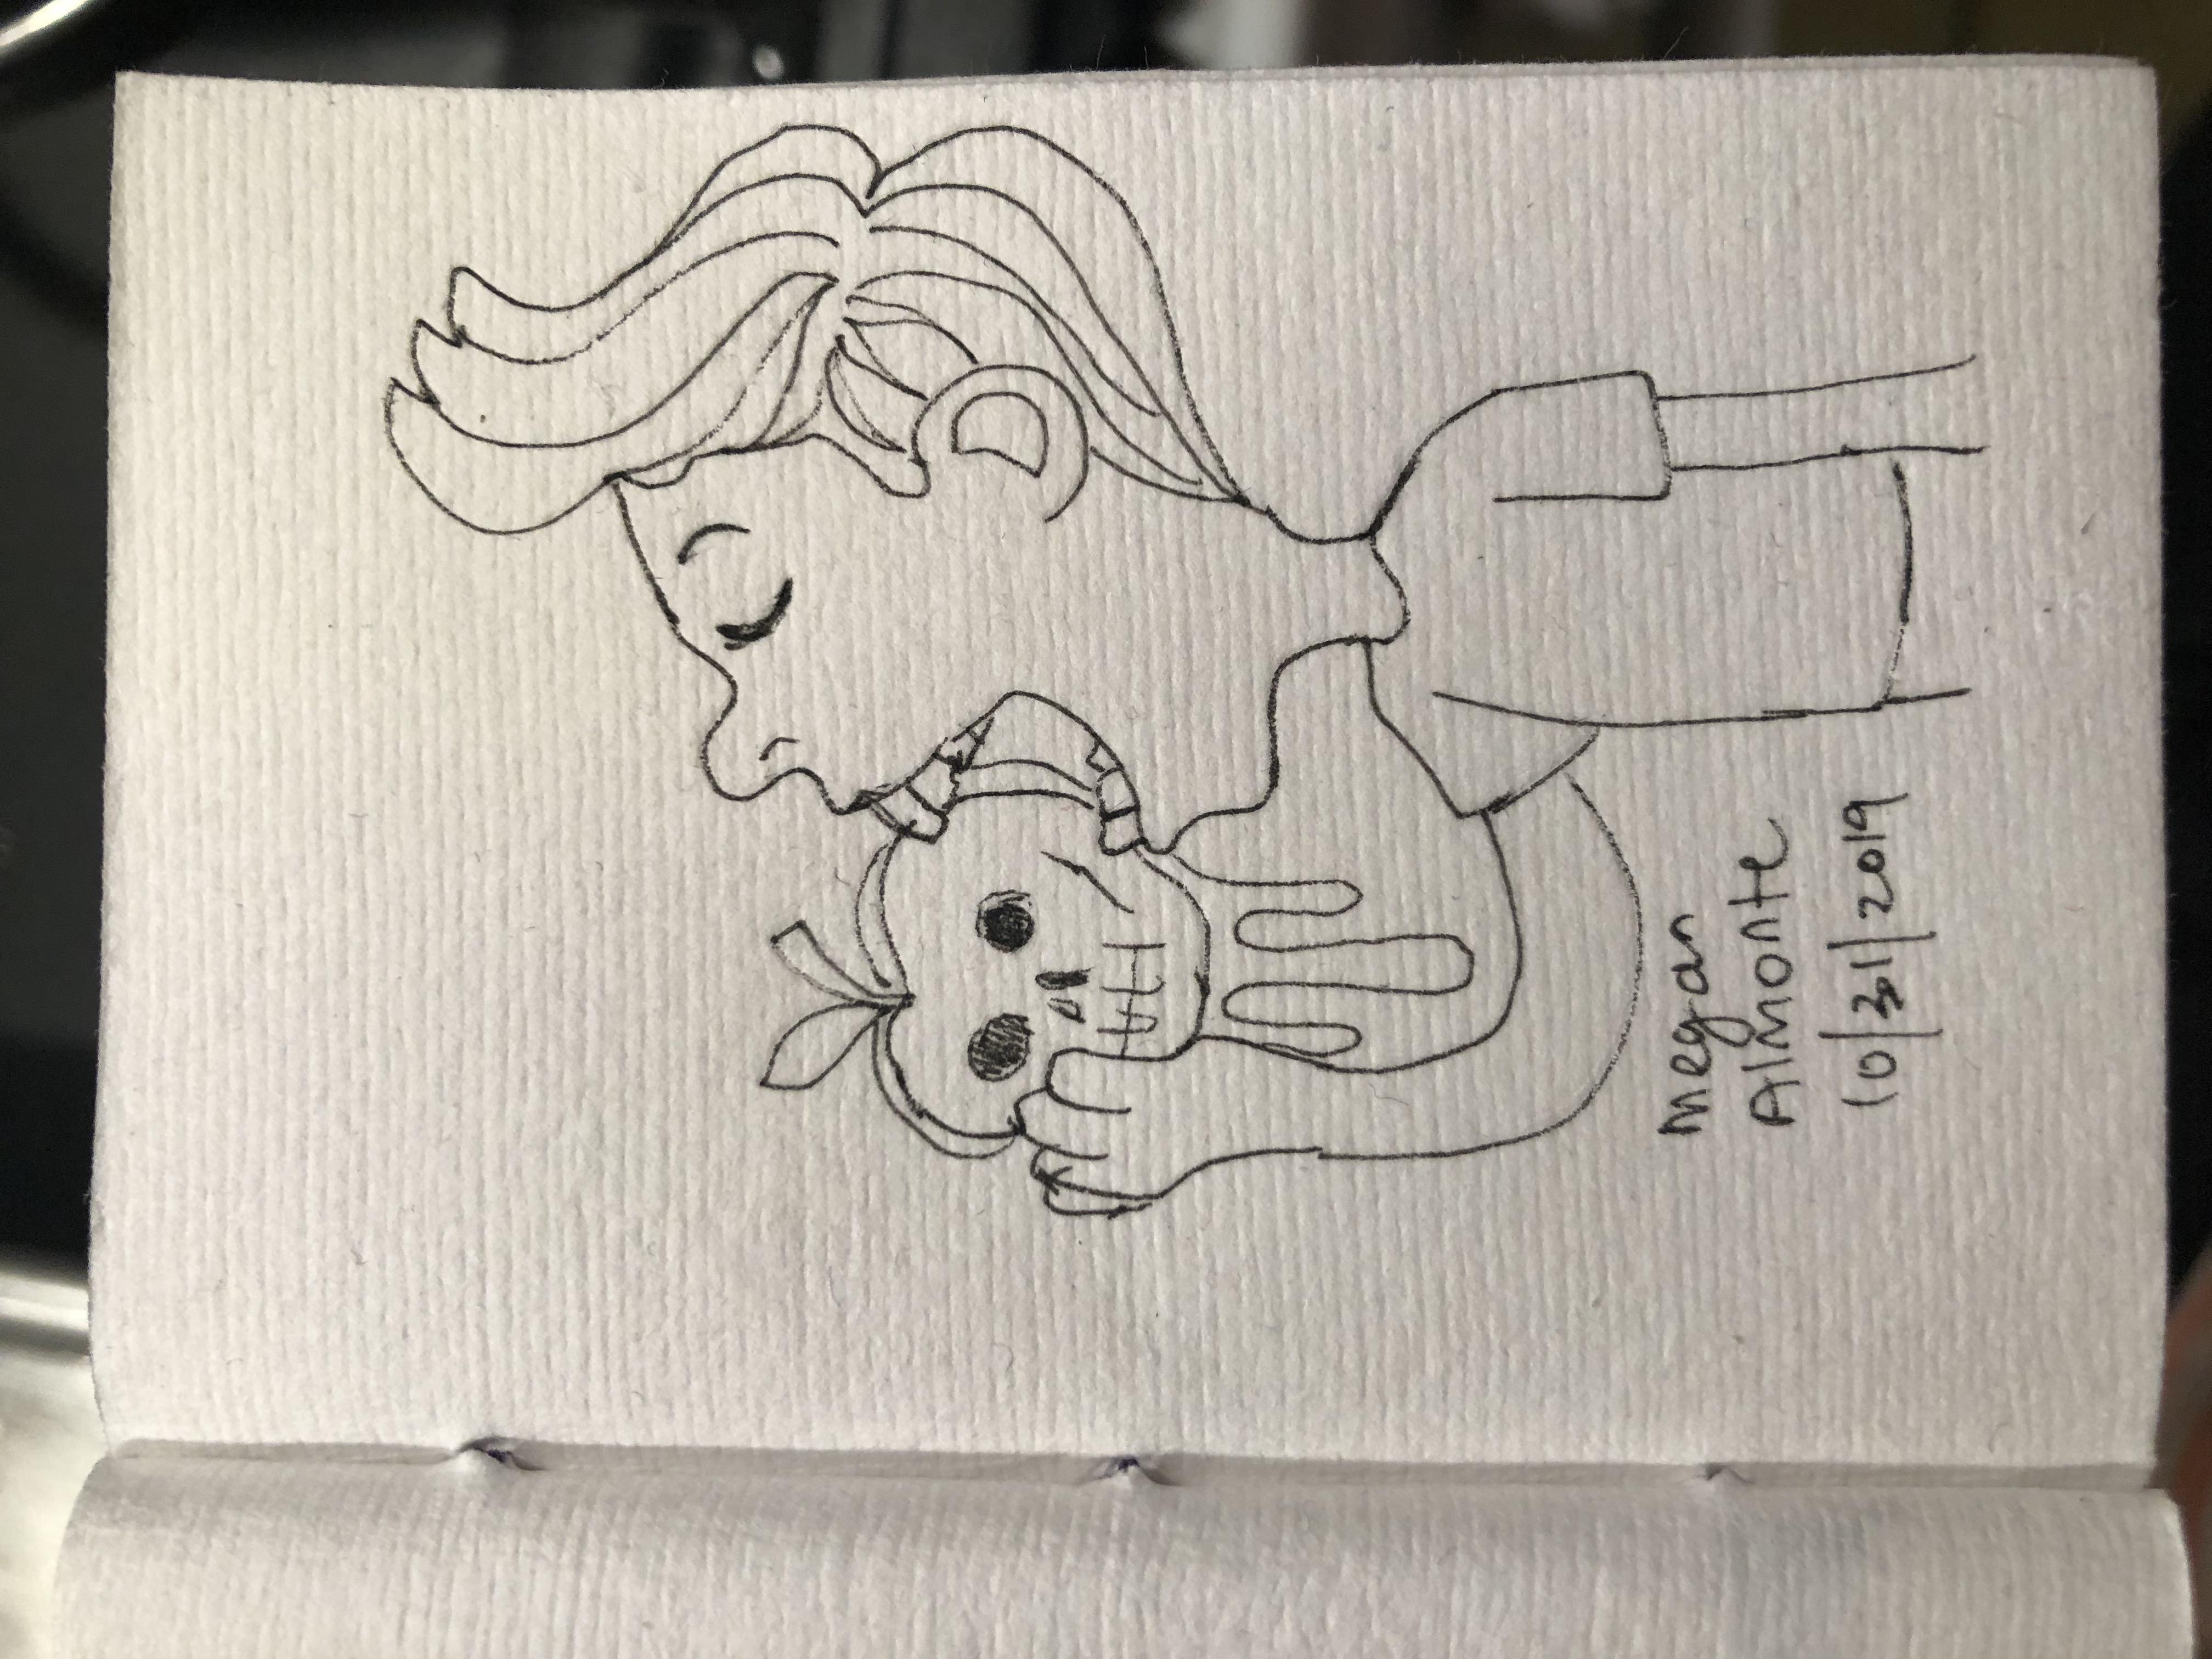 Megan
Almonte
10/31/2019